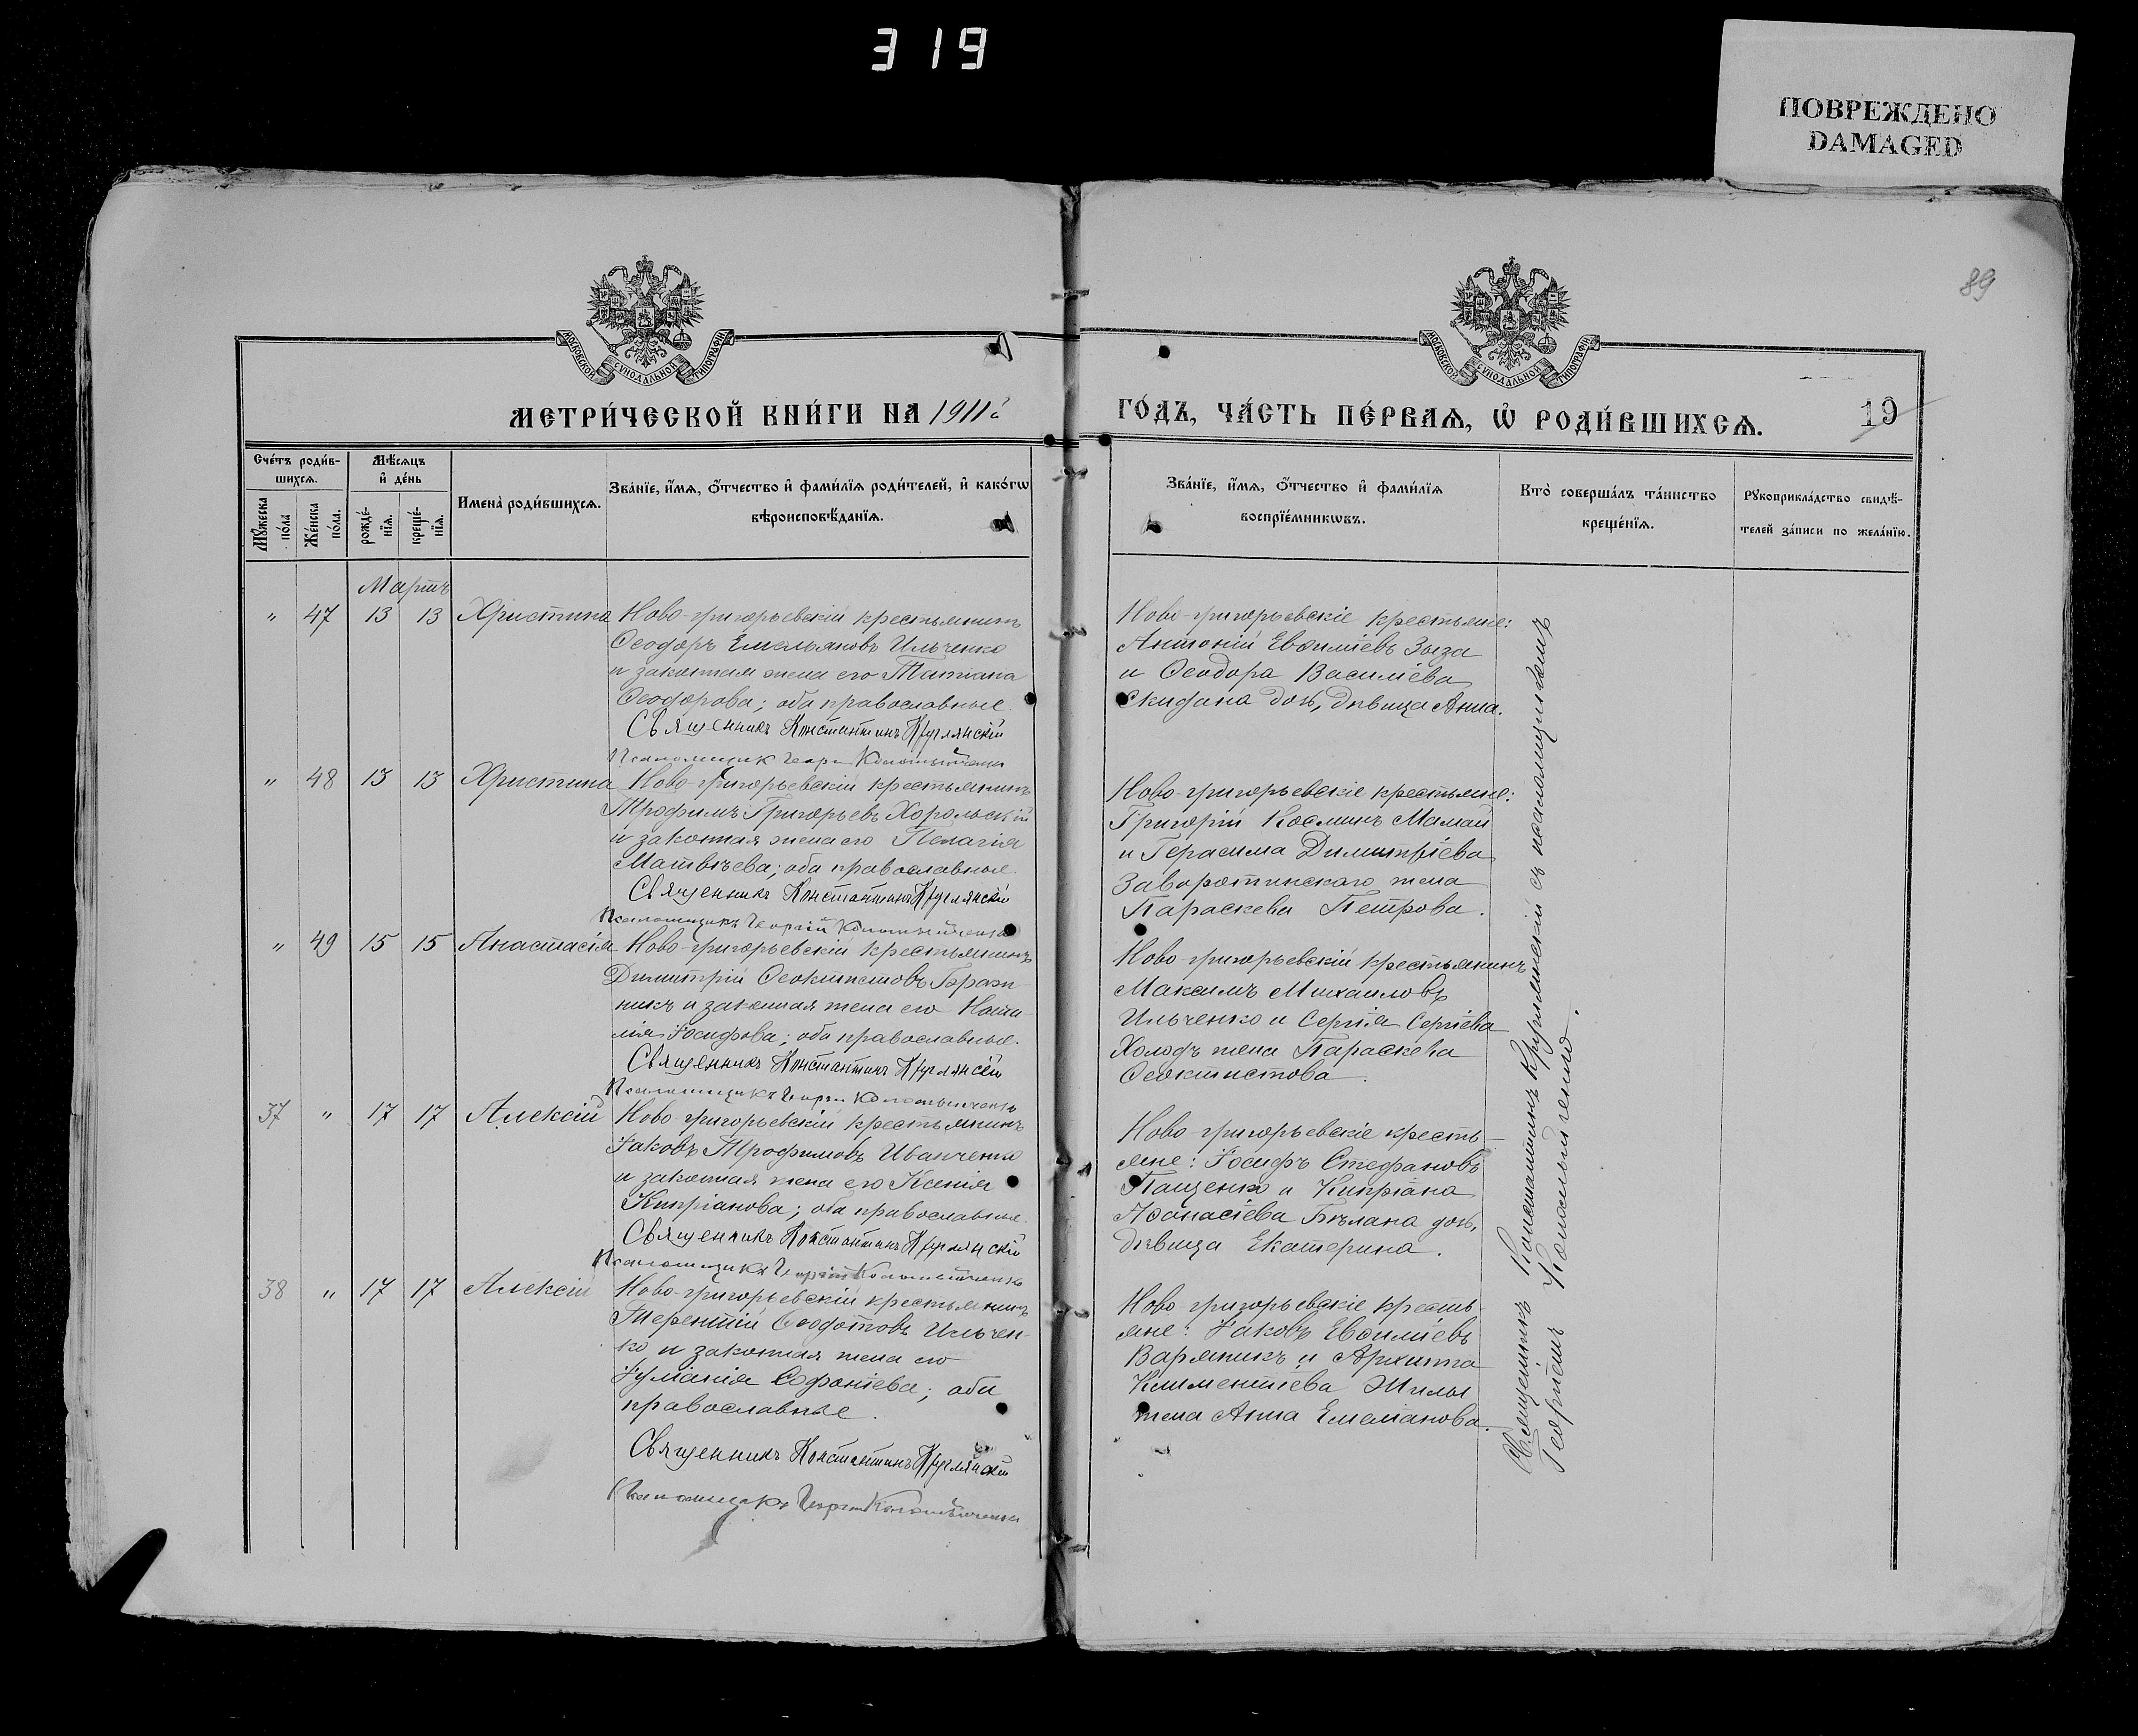 319
ПОВРЕЖДЕНО
DAMAGED
89
МОСКОВСКОЙ СѴНОДАЛЬНОЙ ТИПОГРАФІИ
МОСКОВСКОЙ СѴНОДАЛЬНОЙ ТИПОГРАФІИ
МЕТРИ́ЧЕСКОЙ КНИ́ГИ НА 1911й
ГО́ДЪ, ЧА́СТЬ ПЕ́РВАѦ, Ѡ҆ РОДИ́ВШИХСѦ.
19
Сче́тъ роди́в-
шихсѧ.
Мꙋ́жеска по́ла
Же́нска по́ла.
Мѣ́сѧцъ
и҆ де́нь
рожде́-
нїѧ.
креще́-
нїѧ.
Имена̀ роди́вшихсѧ.
Зва́нїе, и҆́мѧ, ѻ҆́тчество и҆ фами́лїѧ роди́телей, и҆ како́гѡ
вѣроисповѣ́данїѧ.
Зва́нїе, и҆́мѧ, ѻ҆́тчество и҆ фами́лїѧ
воспрїе́мникѡвъ.
Кто̀ соверша́лъ та́инство
креще́нїѧ.
Рꙋкоприкла́дство свидѣ́-
телей за́писи по жела́нїю.
Мартъ
" 47 13 13 Христина
Ново-григорьевскій крестьянинъ
Ѳеодоръ Емельяновъ Ильченко
и законная жена его Татіана
Ѳеодорова; оба православные.
Священникъ Константинъ Круглянскій
Псаломщик Георг
Ново-григорьевскіе крестьяне:
Антоній Евѳиміевъ Зыза
и Ѳеодора Василіева
Скидана дочь, дѣвица Анна.
" 48 13 13 Христина
Ново-григорьевскій крестьянинъ
Трофимъ Григорьевъ Хорольскій
и законная жена его Пелагія
Матвѣева; оба православные.
Священникъ Константинъ Круглянскій
Псаломщикъ Георгій
Ново-григорьевскіе крестьяне:
Григорій Косминъ Мамай
и Герасима Димитріева
Заворотинскаго жена
Параскева Петрова.
" 49 15 15 Анастасія
Ново-григорьевскій крестьянинъ
Димитрій Ѳеоктистовъ Браж-
никъ и законная жена его Ната-
лія Іосифова; оба православные.
Священникъ Константинъ Круглянскій
Псаломщикъ Георгій
Ново-григорьевскій крестьянинъ
Максимъ Михаиловъ
Ильченко и Сергія Сергіева
Холодъ жена Параскева
Ѳеоктистова.
37 " 17 17 Алексій
Ново-григорьевскій крестьянинъ
Іаковъ Трофимовъ Иванченко
и законная жена его Ксенія
Кипріанова; оба православные.
Священникъ Константинъ Круглянскій
Псаломщикъ Георгій
Ново-григорьевскіе кресть-
яне: Іосифъ Стефановъ
Пащенко и Кипріана
Аѳанасіева Бѣлана дочь,
дѣвица Екатерина.
38 " 17 17 Алексій
Ново-григорьевскій крестьянинъ
Терентій Ѳеодотовъ Ильчен-
ко и законная жена его
Іуліанія Софоніева; оба
православные.
Священникъ Константинъ Круглянскій
Псаломщикъ Георгій
Ново-григорьевскіе кресть-
яне: Іаковъ Евѳиміевъ
Варяникъ и Архиппа
Климентіева Жилы
жена Анна Емеліанова.
Священникъ Константинъ Круглянскій съ псаломщикомъ
Георгіемъ